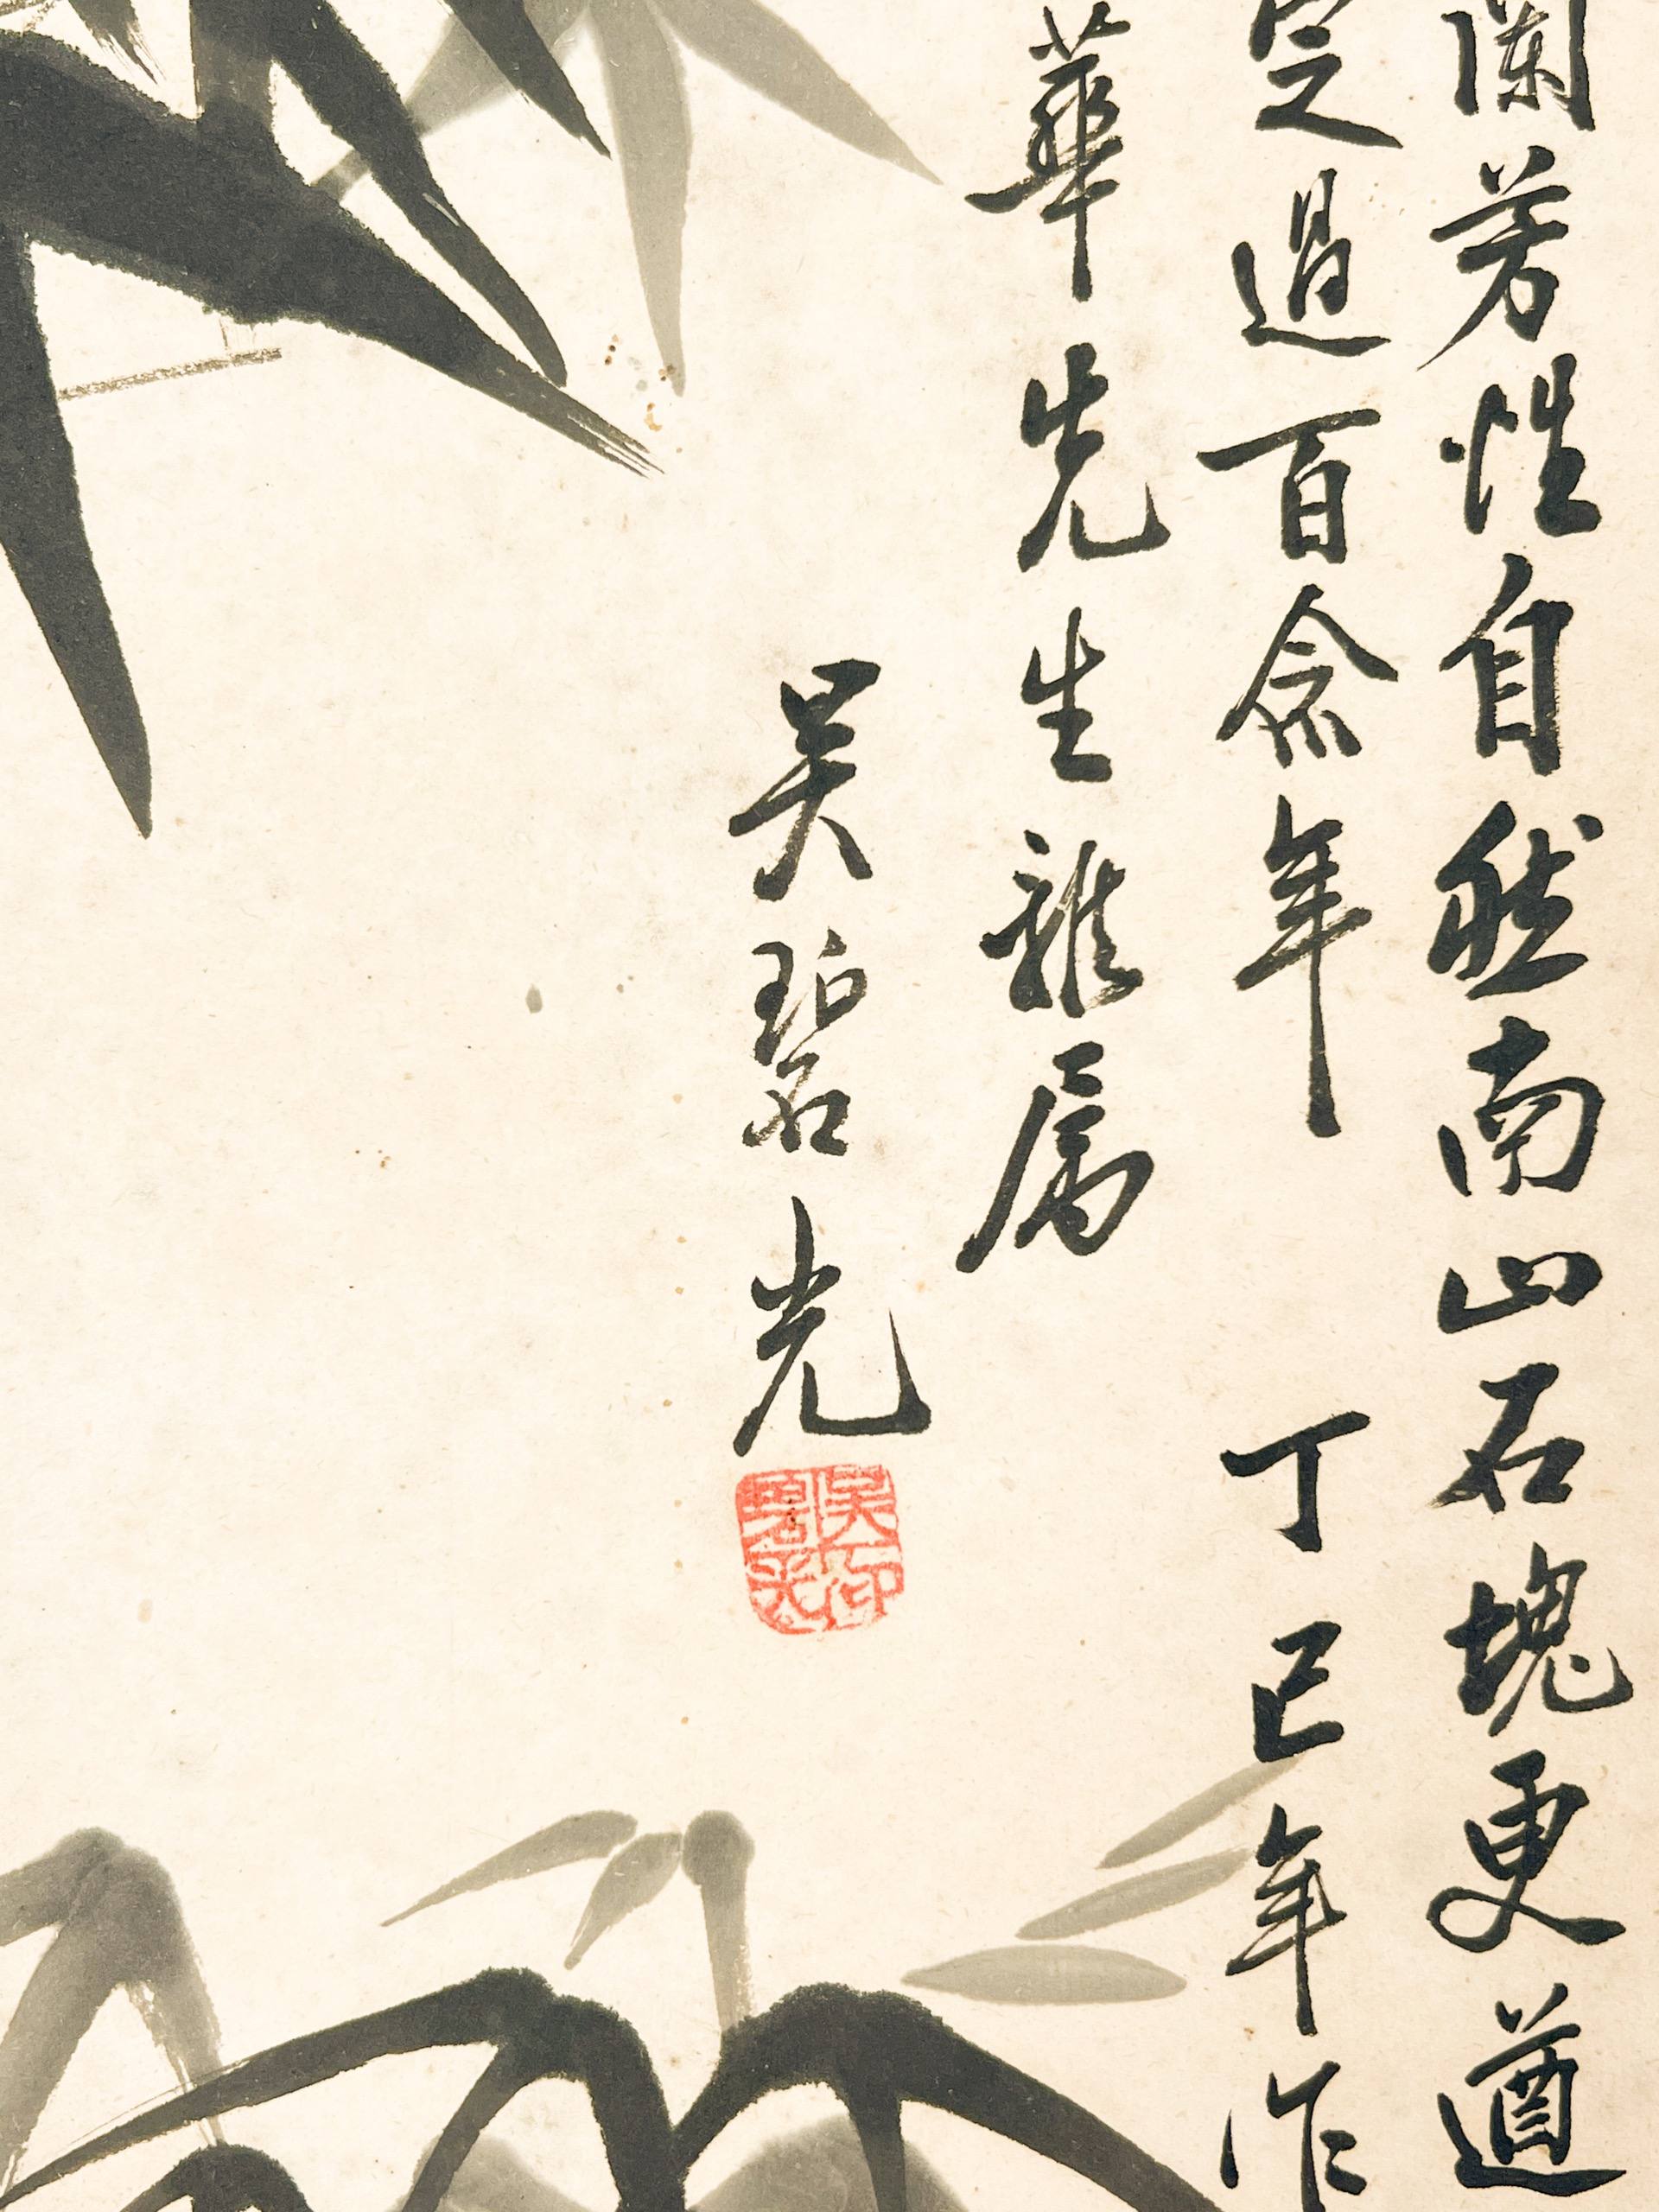 蘭芳性自然南山石塊更遒
定過百念年 丁巳年作
華先生雅属
吳碧光
吳碧光印